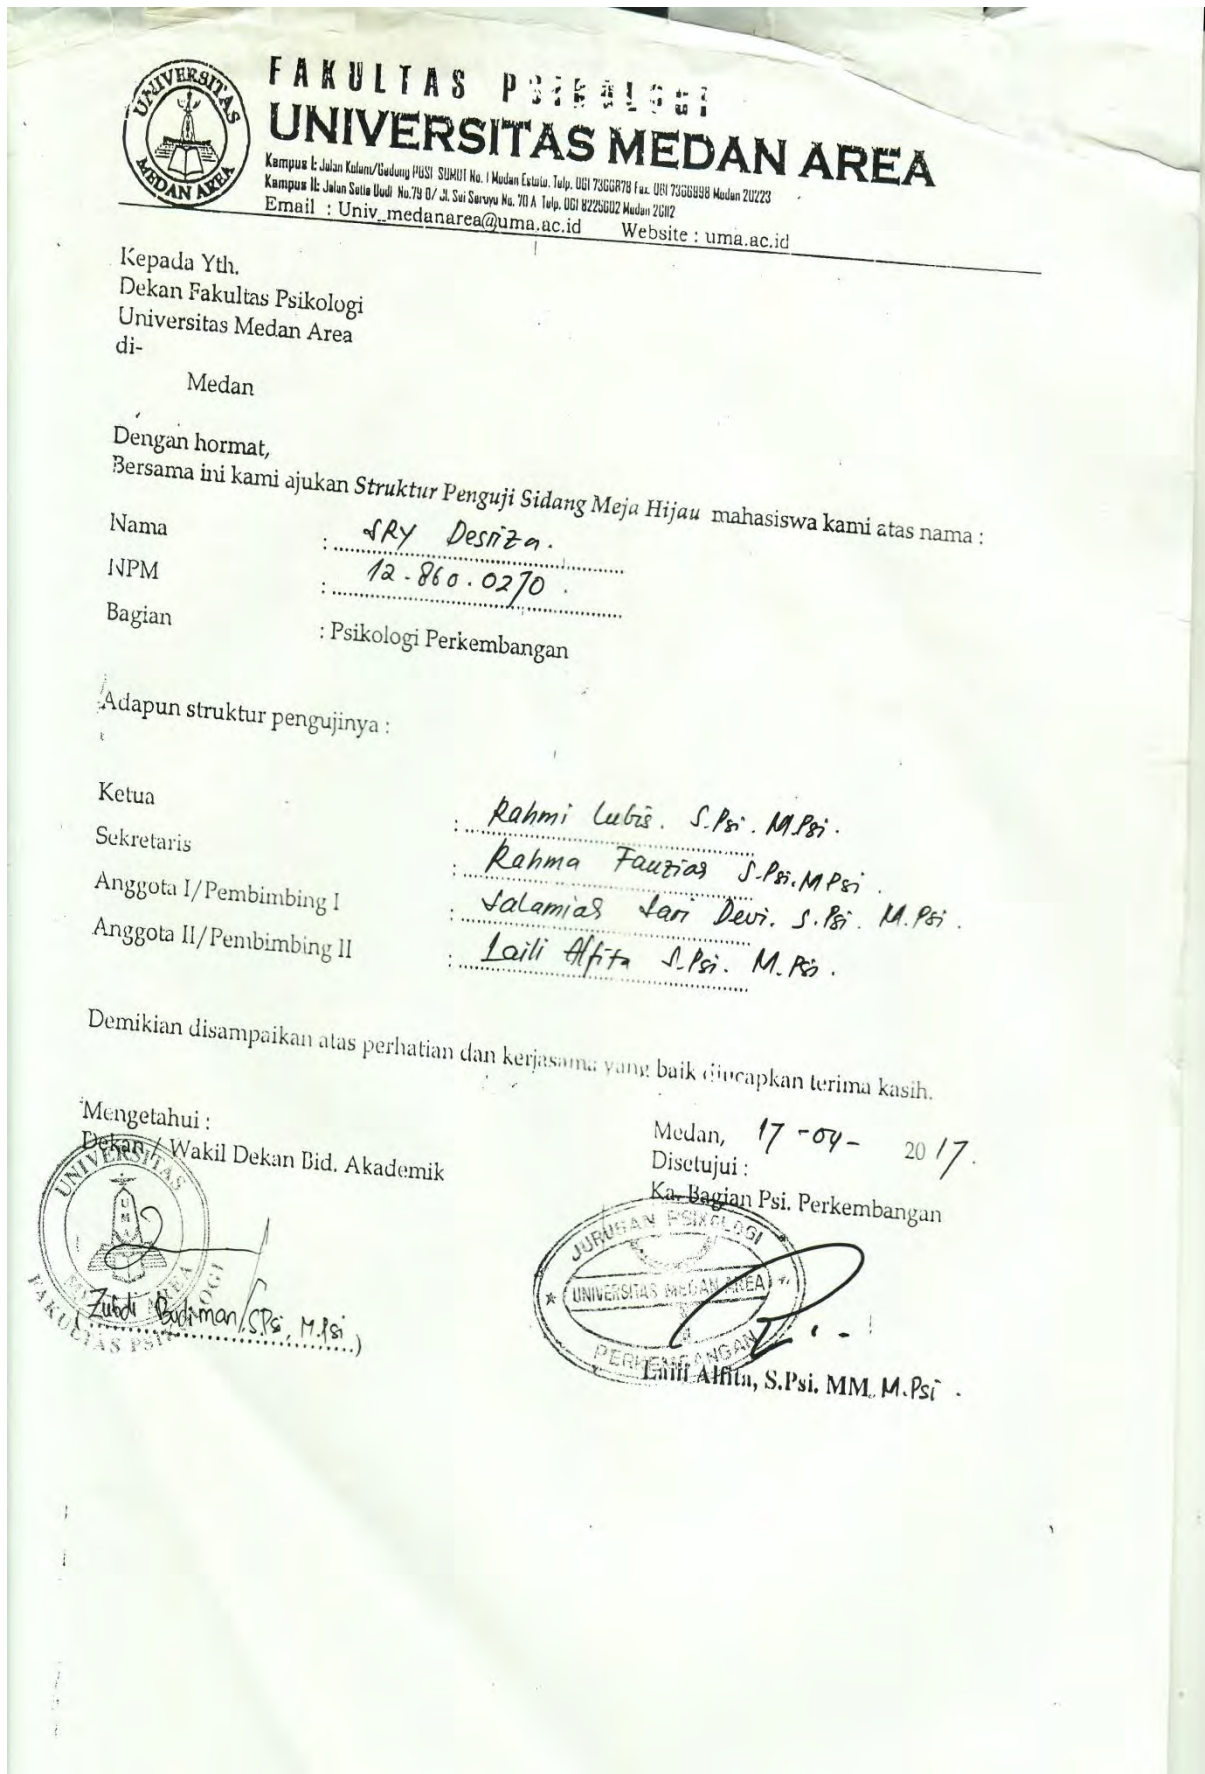 UNIVERSITAS
MEDAN AREA
FAKULTAS PSIKOLOGI
UNIVERSITAS MEDAN AREA
Kampus I: Jalan Kolam/Gedung PBSI SUMUT No. 1 Medan Estate. Telp. 061 7366878 Fax. 061 7366998 Medan 20223
Kampus II: Jalan Setia Budi No.79 B/ Jl. Sei Serayu No. 70 A Telp. 061 8225602 Medan 20112
Email : Univ_medanarea@uma.ac.id Website : uma.ac.id
Kepada Yth.
Dekan Fakultas Psikologi
Universitas Medan Area
di-
Medan
Dengan hormat,
Bersama ini kami ajukan Struktur Penguji Sidang Meja Hijau mahasiswa kami atas nama :
Nama : SRY Desriza.
NPM : 12.860.0270.
Bagian : Psikologi Perkembangan
Adapun struktur pengujinya :
Ketua : Rahmi Lubis. S.Psi. M.Psi.
Sekretaris : Rahma Fauzia S.Psi. MPsi.
Anggota I/Pembimbing I : Salamiah Sari Devi. S.Psi. M.Psi.
Anggota II/Pembimbing II : Laili Alfita S.Psi. M.Psi.
Demikian disampaikan atas perhatian dan kerjasama yang baik diucapkan terima kasih.
Mengetahui :
Dekan / Wakil Dekan Bid. Akademik
UNIVERSITAS
UMA
MEDAN AREA
FAKULTAS PSIKOLOGI
(Zuhdi Budiman, S.Psi, M.Psi)
Medan, 17-04-2017.
Disetujui :
Ka. Bagian Psi. Perkembangan
JURUSAN PSIKOLOGI
UNIVERSITAS MEDAN AREA
PERKEMBANGAN
Laili Alfita, S.Psi. MM. M.Psi.